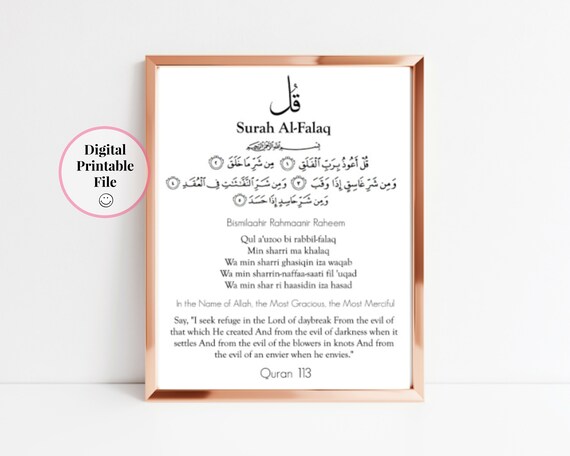 Digital
Printable
File
قُل
Surah Al-Falaq
بِسْمِ ٱللَّهِ ٱلرَّحْمَـٰنِ ٱلرَّحِيمِ
قُلْ أَعُوذُ بِرَبِّ ٱلْفَلَقِ ١ مِن شَرِّ مَا خَلَقَ ٢
وَمِن شَرِّ غَاسِقٍ إِذَا وَقَبَ ٣ وَمِن شَرِّ ٱلنَّفَّـٰثَـٰتِ فِى ٱلْعُقَدِ ٤
وَمِن شَرِّ حَاسِدٍ إِذَا حَسَدَ ٥
Bismlaahir Rahmaanir Raheem
Qul a'uzoo bi rabbil-falaq
Min sharri ma khalaq
Wa min sharri ghasiqin iza waqab
Wa min sharrin-naffaa-saati fil 'uqad
Wa min shar ri haasidin iza hasad
In the Name of Allah, the Most Gracious, the Most Merciful
Say, "I seek refuge in the Lord of daybreak From the evil of
that which He created And from the evil of darkness when it
settles And from the evil of the blowers in knots And from
the evil of an envier when he envies."
Quran 113